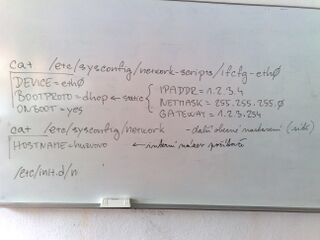 cat /etc/sysconfig/network-scripts/ifcfg-eth0
DEVICE=eth0
BOOTPROTO=dhcp ← static { IPADDR=1.2.3.4
ONBOOT=yes NETMASK=255.255.255.0
GATEWAY=1.2.3.254
cat /etc/sysconfig/network - další obecné nastavení (sítě)
HOSTNAME= ← interní název
/etc/init.d/n